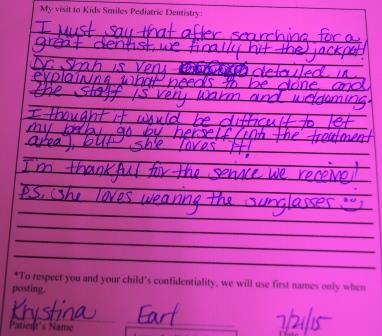 My visit to Kids Smiles Pediatric Dentistry:
I must say that after searching for a
great dentist, we finally hit the jackpot!
Dr. Shah is very detailed in
explaining what needs to be done and
the staff is very warm and welcoming.
I thought it would be difficult to let
my baby go by herself (into the treatment
area), but she loves it!
I'm thankful for the service we receive!
P.S. She loves wearing the sunglasses
*To respect you and your child's confidentiality, we will use first names only when
posting.
Khystina Earl 7/21/15
Patient's Name Date